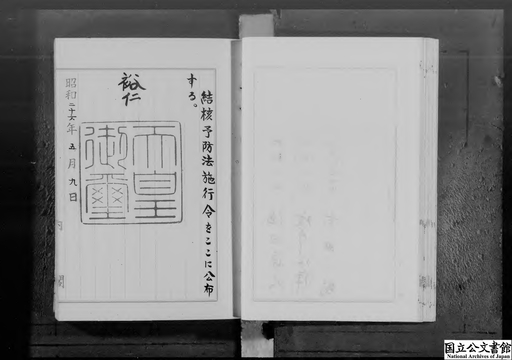 結核予防法施行令をここに公布
する。
裕仁
天皇
御璽
昭和二十六年五月九日
内閣
国立公文書館
National Archives of Japan